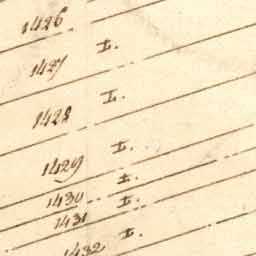 1426
1427 I.
1428 I.
1429 I.
1430 I.
1431 I.
1432 I.